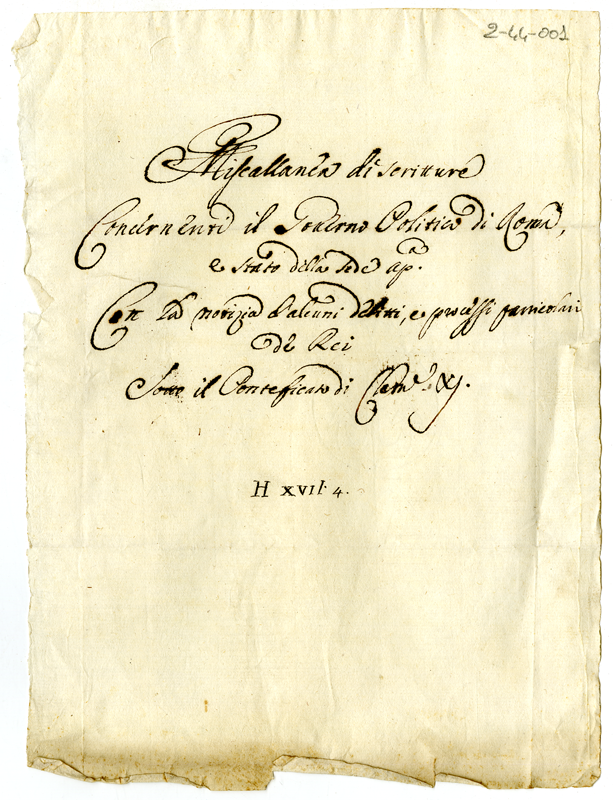 2-44-001
Miscellanea di scritture
Concernenti il Governo Politico di Roma,
e stato della sede ap.ca
Con la notizia d'alcuni delitti, e processi particolari
de Rei
Sotto il Pontificato di Clem.e XI.
H XVII. 4.